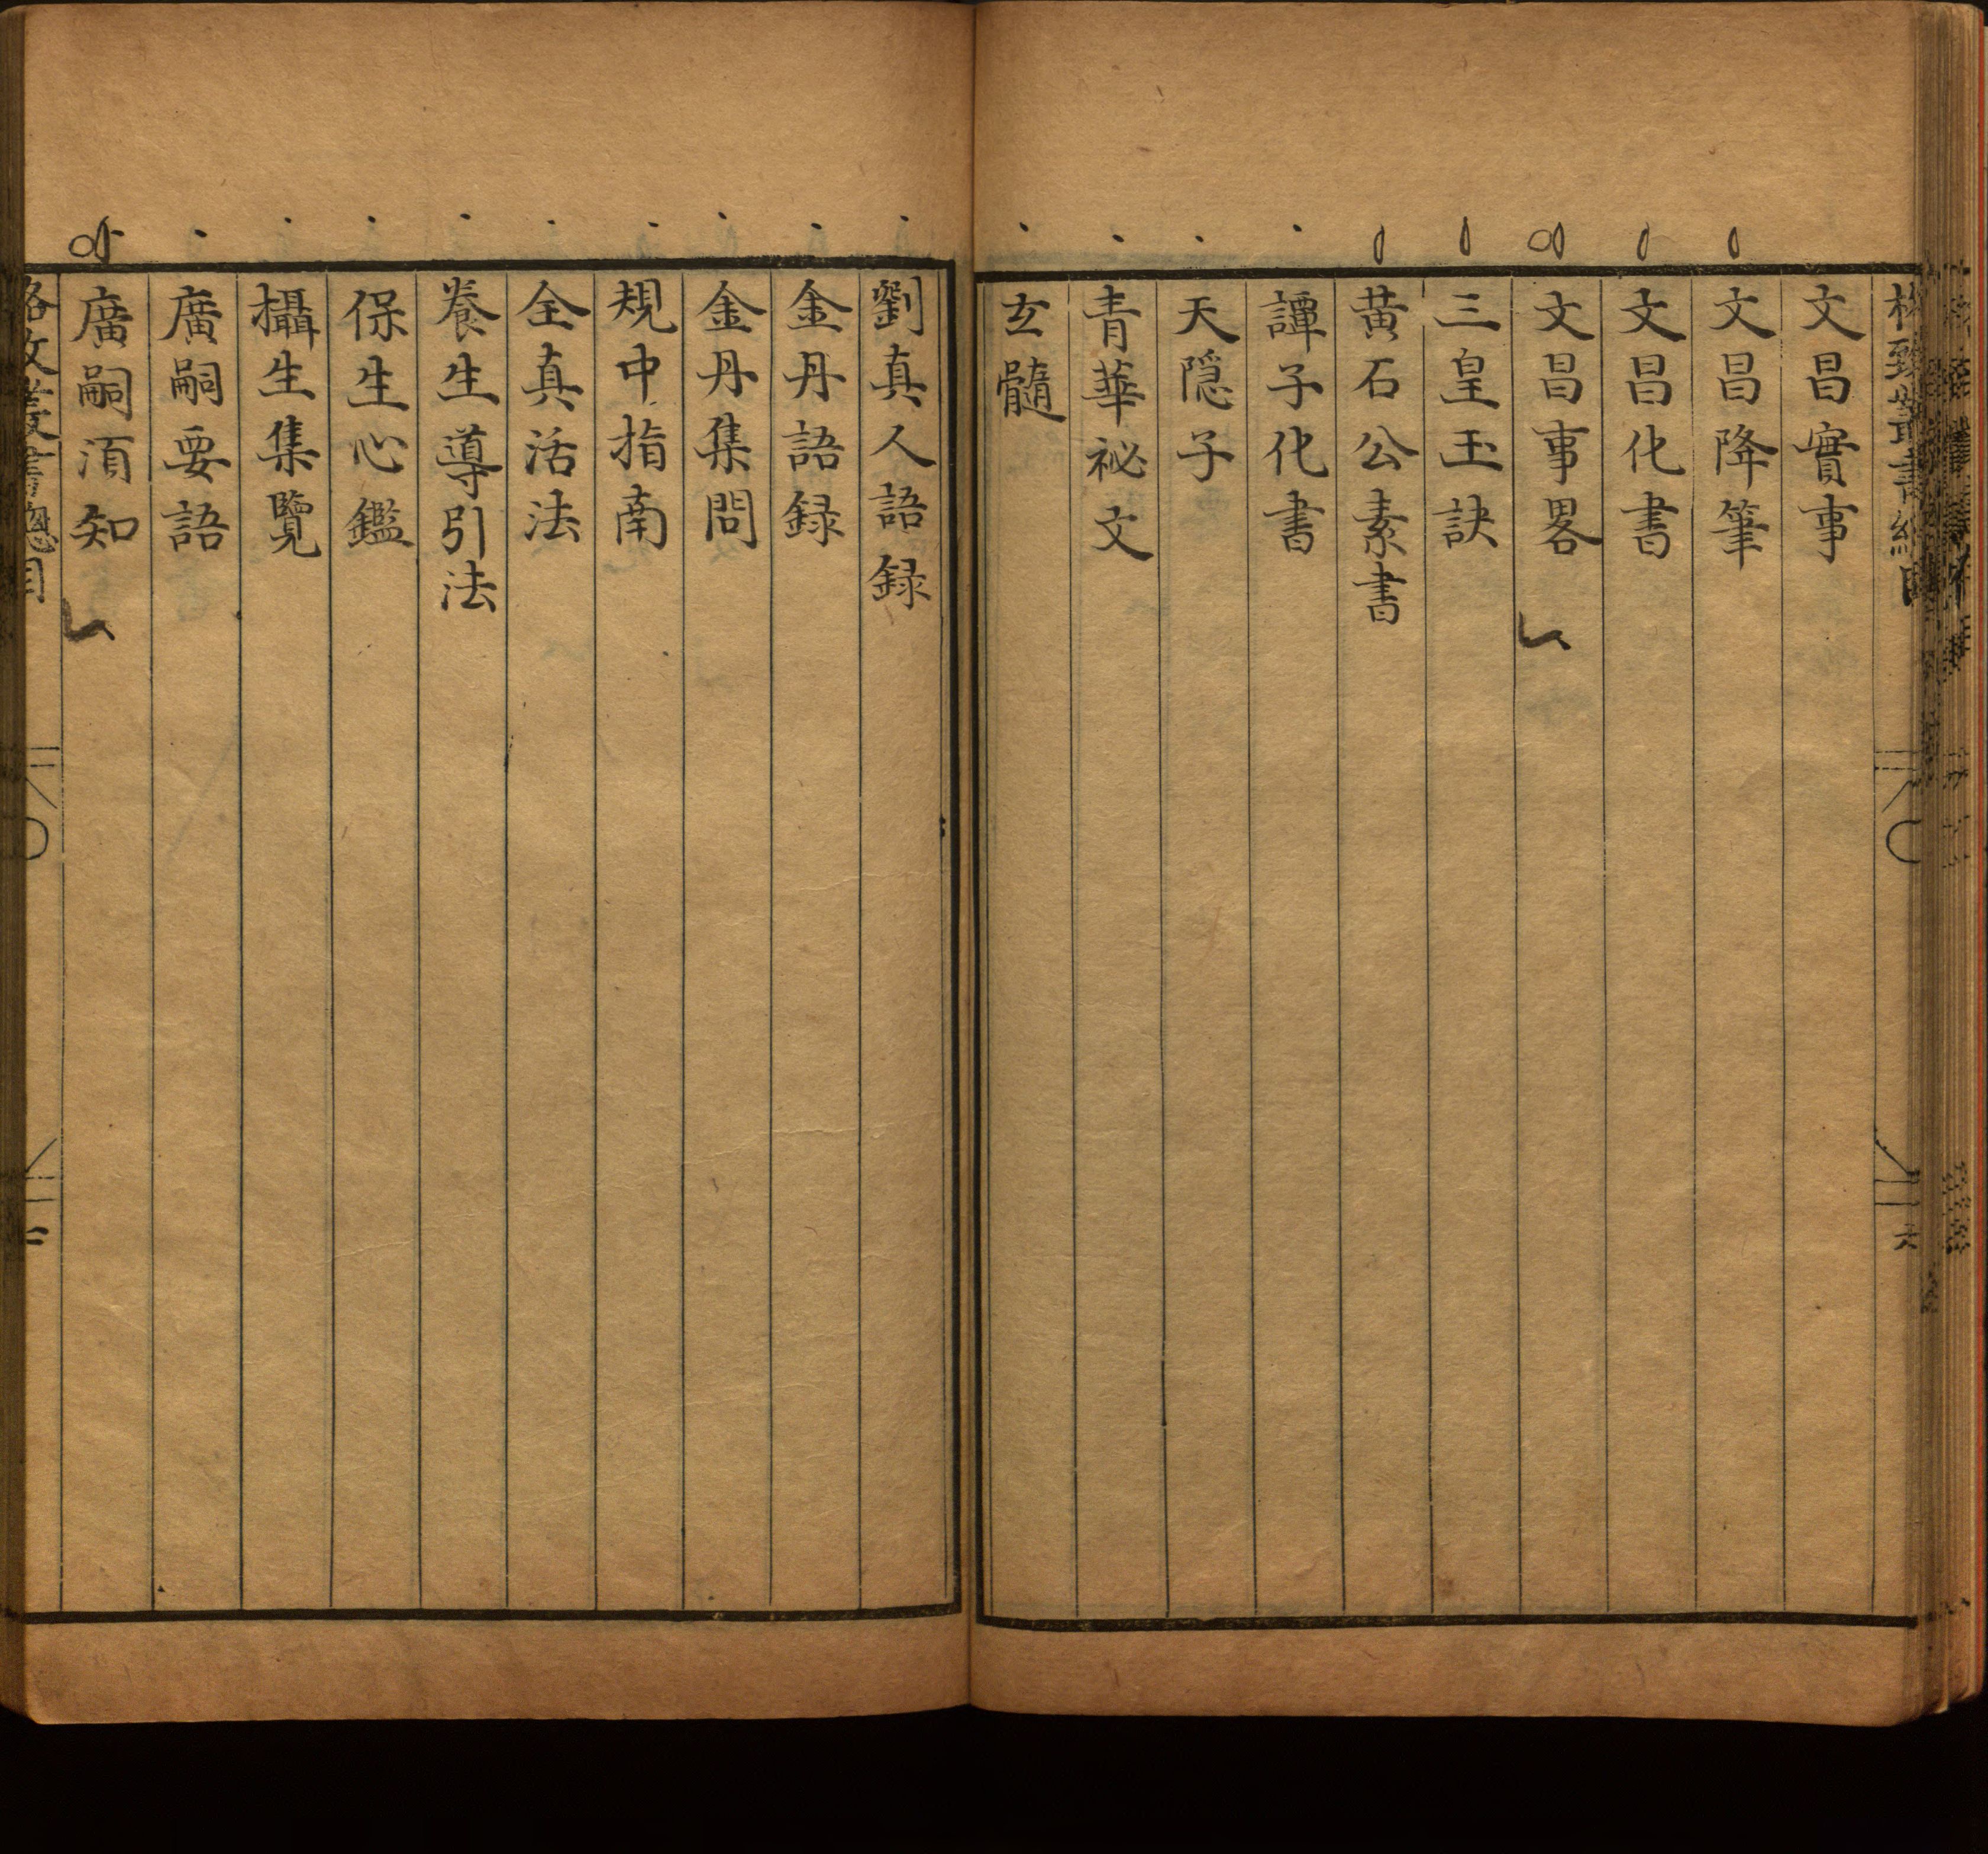 格致叢書總目
六
文昌實事
文昌降筆
文昌化書
文昌事畧
三皇玉訣
黄石公素書
譚子化書
天隱子
青華祕文
玄髓
劉真人語録
金丹語録
金丹集問
規中指南
全真活法
養生導引法
保生心鑑
攝生集覽
廣嗣要語
廣嗣湏知
格致叢書總目